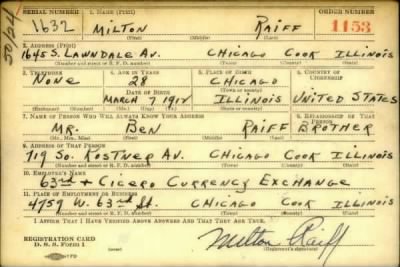 SERIAL NUMBER 1. NAME (Print) ORDER NUMBER
1632 MILTON RAIFF 1153
(First) (Middle) (Last)
2. ADDRESS (Print)
1645 S. LAWNDALE AV. CHICAGO COOK ILLINOIS
(Number and street or R. F. D. number) (Town) (County) (State)
3. TELEPHONE 4. AGE IN YEARS 5. PLACE OF BIRTH 6. COUNTRY OF CITIZENSHIP
NONE 28 CHICAGO
DATE OF BIRTH (Town or county)
MARCH 7 1912 ILLINOIS UNITED STATES
(Exchange) (Number) (Mo.) (Day) (Yr.) (State or country)
7. NAME OF PERSON WHO WILL ALWAYS KNOW YOUR ADDRESS 8. RELATIONSHIP OF THAT PERSON
MR. BEN RAIFF BROTHER
(Mr., Mrs., Miss) (First) (Middle) (Last)
9. ADDRESS OF THAT PERSON
719 SO. KOSTNER AV. CHICAGO COOK ILLINOIS
(Number and street or R. F. D. number) (Town) (County) (State)
10. EMPLOYER'S NAME
63rd + CICERO CURRENCY EXCHANGE
11. PLACE OF EMPLOYMENT OR BUSINESS
4759 W. 63rd St. CHICAGO COOK ILLINOIS
(Number and street or R. F. D. number) (Town) (County) (State)
I AFFIRM THAT I HAVE VERIFIED ABOVE ANSWERS AND THAT THEY ARE TRUE.
REGISTRATION CARD
D. S. S. Form 1
Milton Raiff
(Registrant's signature)